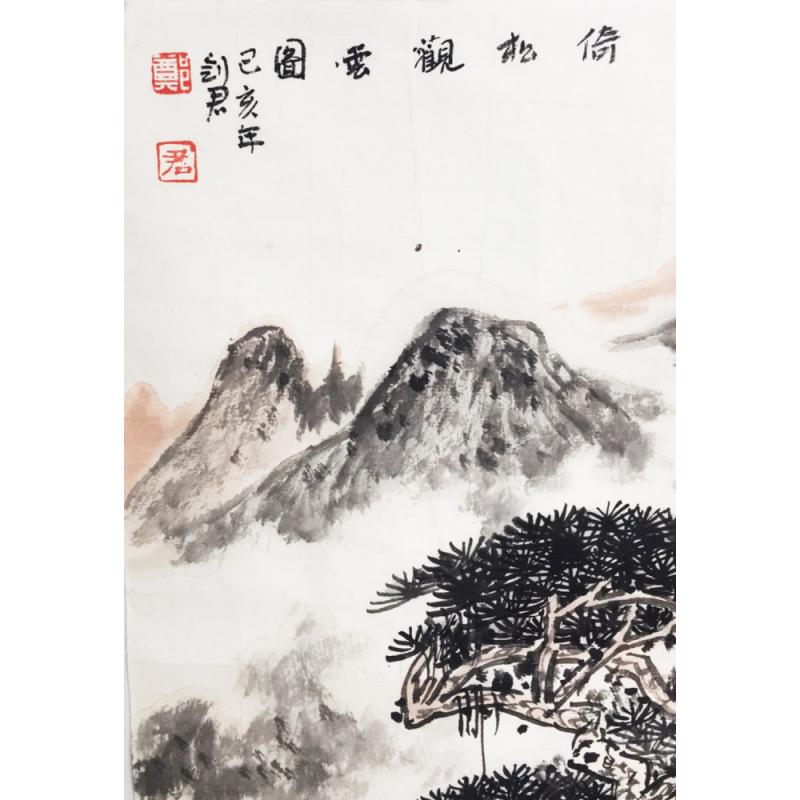 倚松觀雲圖
己亥年
剑君
鄭
君